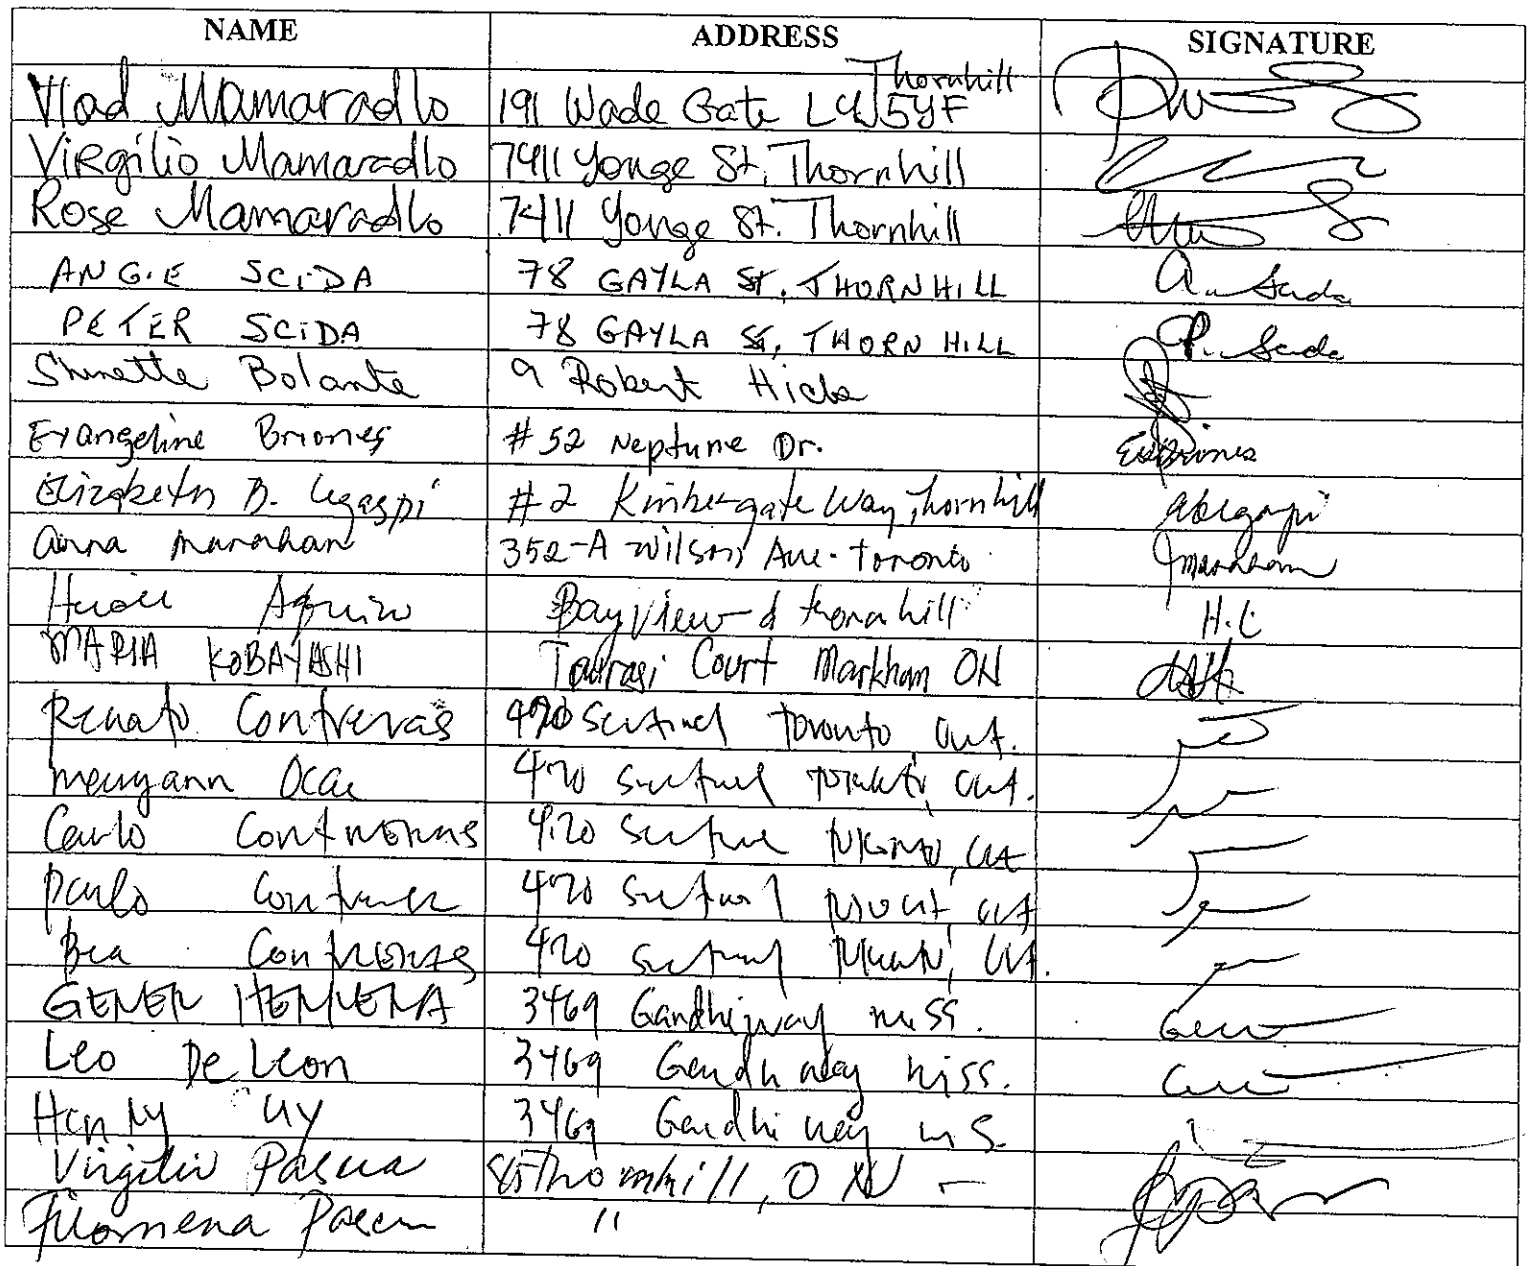 NAME ADDRESS SIGNATURE
Vlad Mamaradlo 191 Wade Gate L4J5Y7 Thornhill
Virgilio Mamaradlo 7411 Yonge St. Thornhill
Rose Mamaradlo 7411 Yonge St. Thornhill
ANGIE SCIDA 78 GAYLA ST, THORNHILL A. Scida
PETER SCIDA 78 GAYLA ST, THORN HILL P. Scida
Bolante 9 Robert Hicks
Evangeline Briones #52 Neptune Dr. Briones
Elizabeth B. Legaspi #2 Kimbergate Way, Thornhill
Anna Marahan 352-A Wilson Ave. Toronto
Aquino Bayview & Thornhill H.C
MARIA KOBAYASHI Court Markham ON
Renato Contreras 470 Sentinel Toronto Ont.
Maryann 470 Sentinel Toronto, Ont.
Carlo Contreras 470 Sentinel Toronto, Ont
Paulo Contreras 470 Sentinel Toronto, Ont
Bea Contreras 470 Sentinel Toronto, Ont.
GENER HERRERA 3469 Gandhi way miss.
Leo De Leon 3469 Gandhi way miss.
Henry Uy 3469 Gandhi way
Virgilio Pascua Thornhill, ON -
Filomena Pascua "